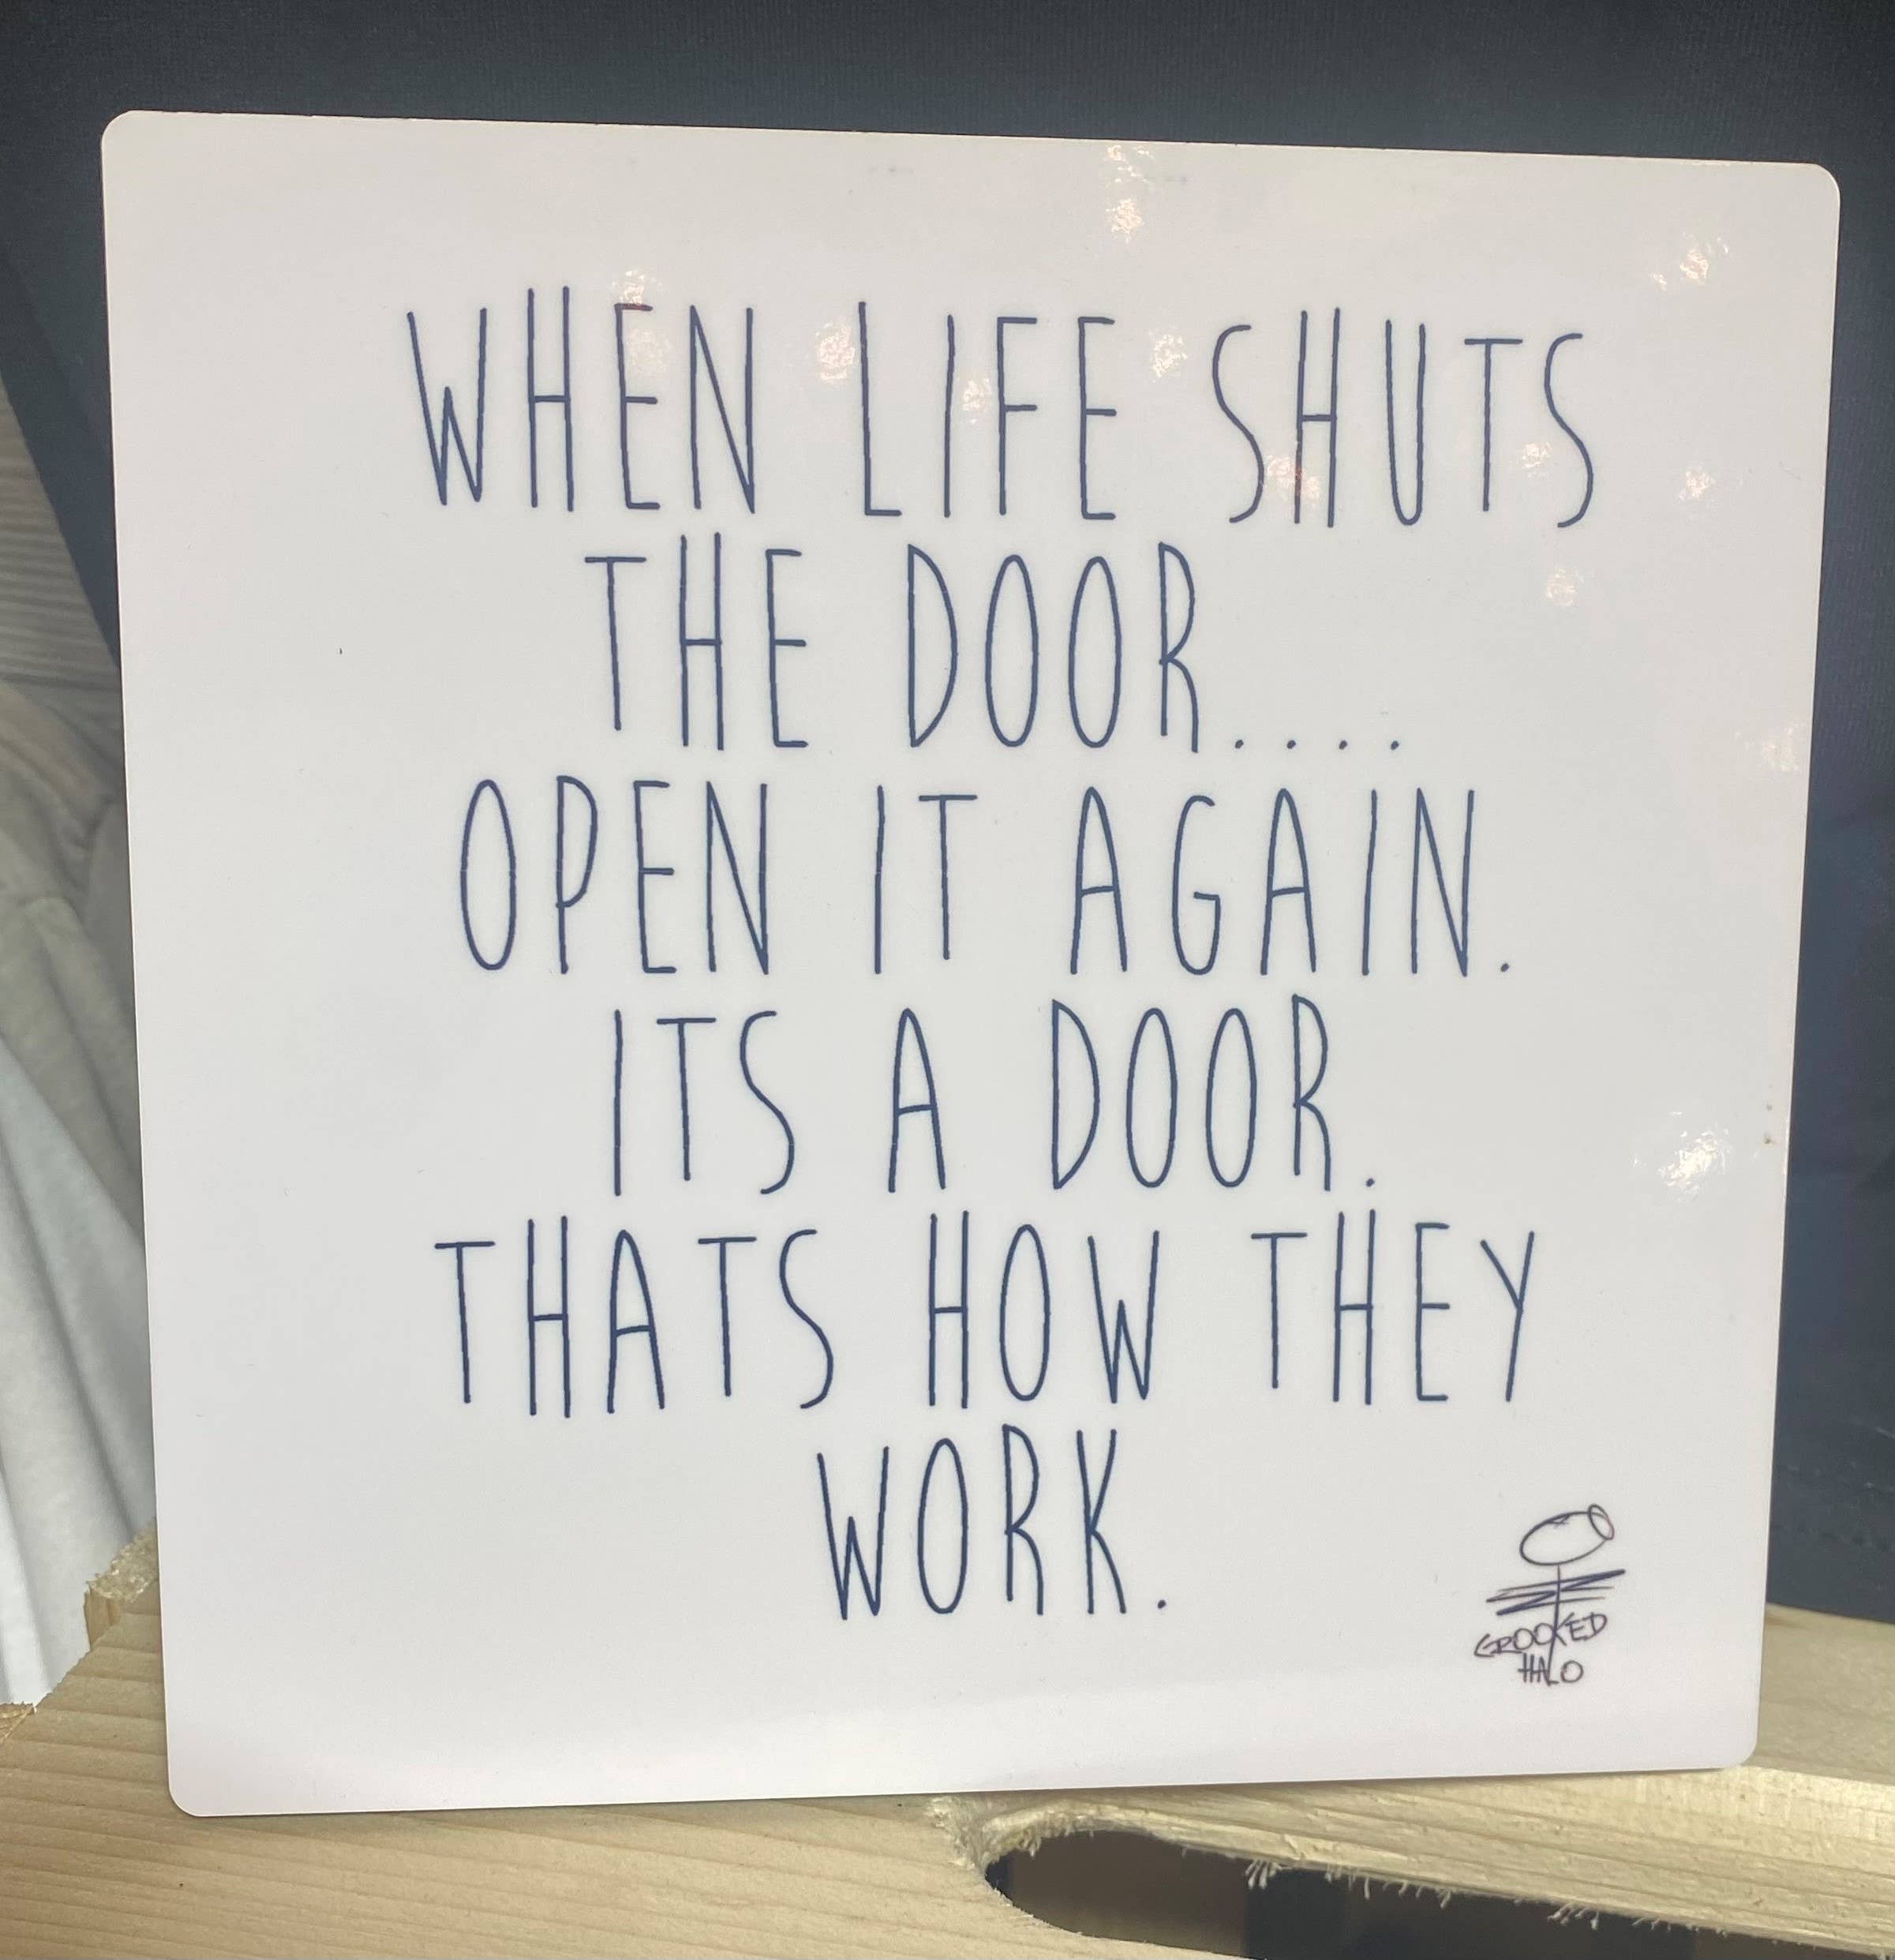 WHEN LIFE SHUTS
THE DOOR....
OPEN IT AGAIN.
ITS A DOOR.
THATS HOW THEY
WORK.
CROOKED
HALO